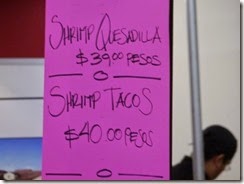 SHRIMP QUESADILLA
$39.00 PESOS
SHRIMP TACOS
$40.00 PESOS